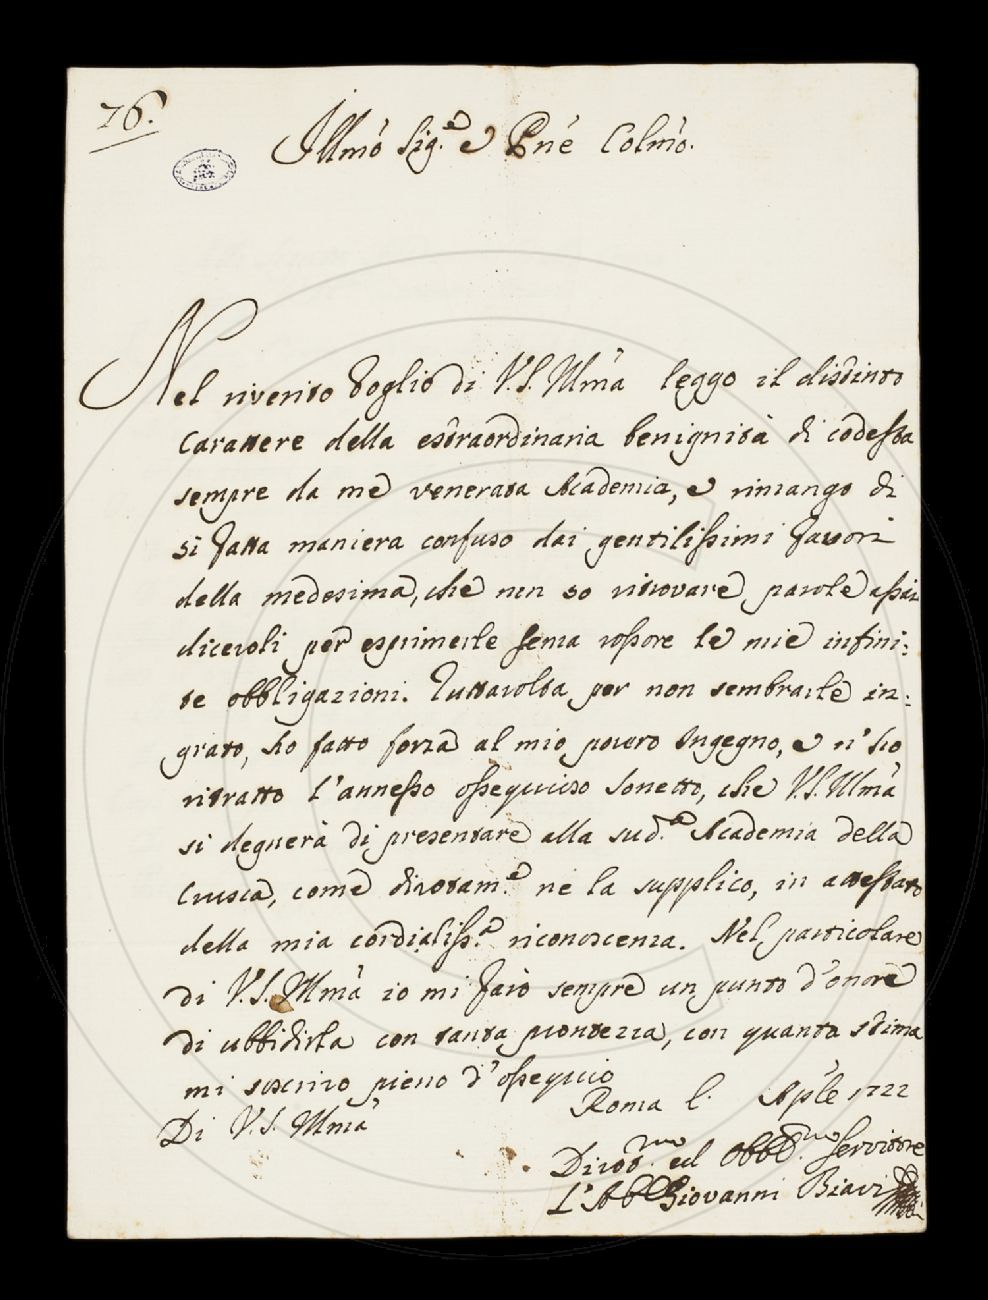 76.
Illmo Sig.e e Pne Colmo.
Nel riverito foglio di V.S. Illma leggo il distinto
Carattere della estraordinaria benignità di codesta
sempre da me venerata Academia, e rimango di
sì fatta maniera confuso dai gentilissimi favori
della medesima, che non so ritrovare parole assai
dicevoli per esprimerle senza rossore le mie infini:
te obbligazioni. Tuttavolta per non sembrarle in:
grato, ho fatto forza al mio povero Ingegno, e n'ho
ritratto l'annesso ossequioso Sonetto, che V.S. Illma
si degnerà di presentare alla sud.a Academia della
Crusca, come divotam.e ne la supplico, in attestato
della mia cordialiss.a riconoscenza. Nel particolare
di V.S. Illma io mi farò sempre un punto d'onore
di ubbidirla con tanta prontezza, con quanta stima
mi soscrivo pieno d'ossequio
Di V.S. Illma
Roma l. Aple 1722
Divot.mo ed Obbd.mo Servitore
L'Ab Giovanni Biavi